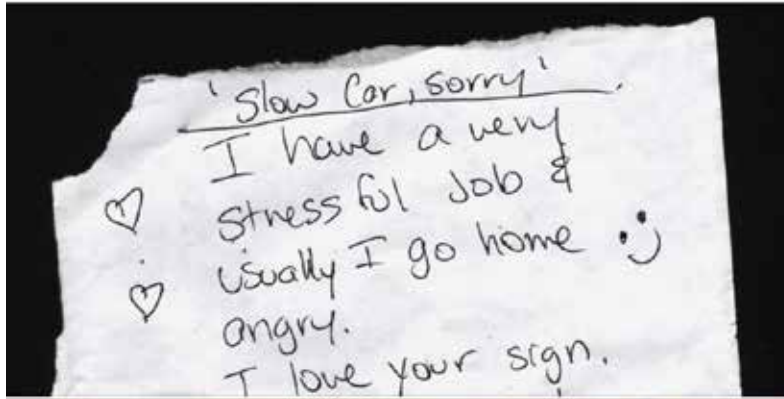 'Slow Car, sorry'.
I have a very
stressful Job &
usually I go home :)
angry.
I love your sign.